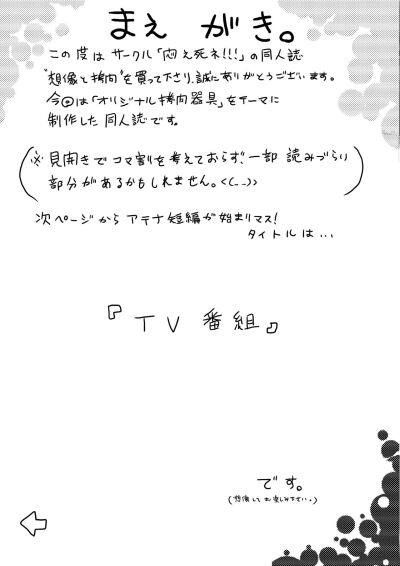 まえがき。
この度はサークル「悶え死ネ!!!」の同人誌
"想像と拷問"を買って下さり、誠にありがとうございます。
今回は「オリジナル拷問器具」をテーマに
制作した同人誌です。
(※見開きでコマ割りを考えておらず、一部 読みづらい
部分があるかもしれません。<(_ _)>)
次ページから アテナ短編が始まりマス!
タイトルは...
『TV番組』
です。
(想像してお楽しみ下さい。)